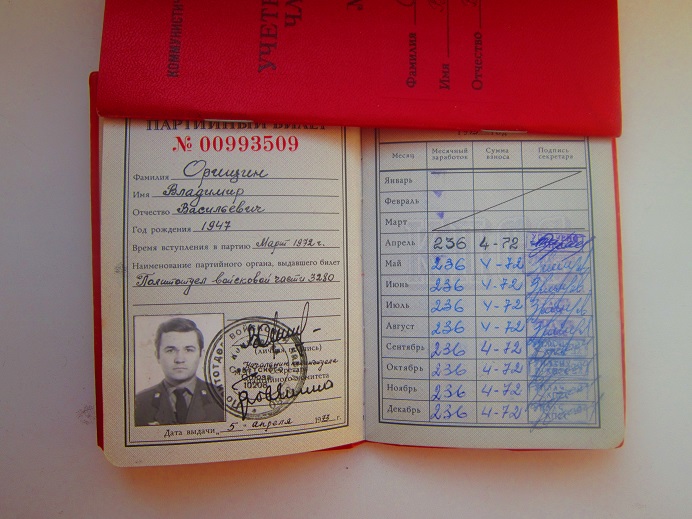 КОММУНИСТИЧ
УЧЕТНАЯ
Фамилия
Имя
Отчество
ПАРТИЙНЫЙ БИЛЕТ
№ 00993509
Фамилия Орищин
Имя Владимир
Отчество Васильевич
Год рождения 1947
Время вступления в партию Март 1972 г.
Наименование партийного органа, выдавшего билет
Политотдел войсковой части 3280
(личная подпись)
Дата выдачи „5" апреля 1973 г.
Месяц Месячный заработок Сумма взноса Подпись секретаря
Январь
Февраль
Март
Апрель 236 4-72
Май 236 4-72
Июнь 236 4-72
Июль 236 4-72
Август 236 4-72
Сентябрь 236 4-72
Октябрь 236 4-72
Ноябрь 236 4-72
Декабрь 236 4-72